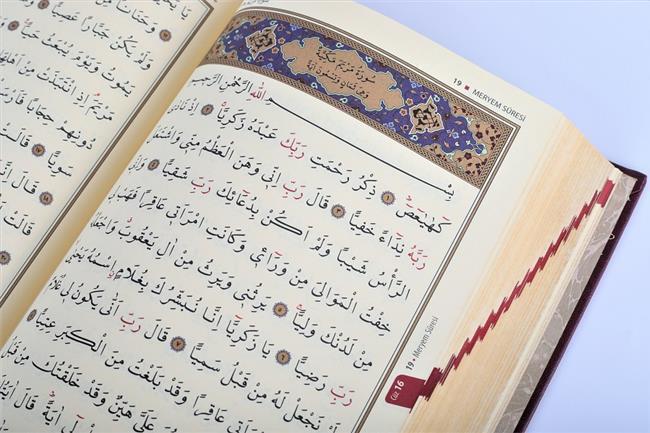 19 • MERYEM SÛRESİ
سُورَةُ مَرْيَمَ مَكِّيَّةٌ
وَهِيَ ثَمَانٍ وَتِسْعُونَ اٰيَةً
بِسْمِ اللّٰهِ الرَّحْمٰنِ الرَّحِيمِ
كٓهٰيٰعٓصٓ ﴿١﴾ ذِكْرُ رَحْمَتِ رَبِّكَ عَبْدَهُ زَكَرِيَّا ﴿٢﴾ اِذْ نَادٰى
رَبَّهُ نِدَٓاءً خَفِيًّا ﴿٣﴾ قَالَ رَبِّ اِنّ۪ي وَهَنَ الْعَظْمُ مِنّ۪ي وَاشْتَعَلَ
الرَّأْسُ شَيْبًا وَلَمْ اَكُنْ بِدُعَٓائِكَ رَبِّ شَقِيًّا ﴿٤﴾ وَاِنّ۪ي
خِفْتُ الْمَوَالِيَ مِنْ وَرَٓاء۪ي وَكَانَتِ امْرَاَت۪ي عَاقِرًا فَهَبْ ل۪ي
مِنْ لَدُنْكَ وَلِيًّا ﴿٥﴾ يَرِثُن۪ي وَيَرِثُ مِنْ اٰلِ يَعْقُوبَ وَاجْعَلْهُ
رَبِّ رَضِيًّا ﴿٦﴾ يَا زَكَرِيَّٓا اِنَّا نُبَشِّرُكَ بِغُلَامٍ اسْمُهُ يَحْيٰى
لَمْ نَجْعَلْ لَهُ مِنْ قَبْلُ سَمِيًّا ﴿٧﴾ قَالَ رَبِّ اَنّٰى يَكُونُ ل۪ي غُلَامٌ
امْرَاَت۪ي عَاقِرًا وَقَدْ بَلَغْتُ مِنَ الْكِبَرِ عِتِيًّا
عَلَيَّ هَيِّنٌ وَقَدْ خَلَقْتُكَ مِنْ قَبْلُ
ل۪ٓي اٰيَةً قَالَ
Cüz 16
19 • Meryem Sûresi
وَلَمْ يَكُنْ جَبَّارًا
يَمُوتُ وَيَوْمَ يُبْعَثُ حَيًّا
مَرْيَمَ اِذِ انْتَبَذَتْ مِنْ اَهْلِهَا
دُونِهِمْ حِجَابًا
سَوِيًّا ﴿١٧﴾ قَالَتْ
﴿١٨﴾ قَالَ
قَالَتْ